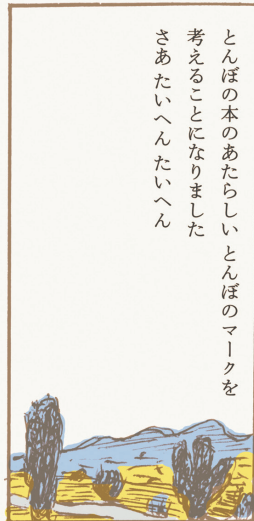 とんぼの本のあたらしい とんぼのマークを
考えることになりました
さあ たいへん たいへん